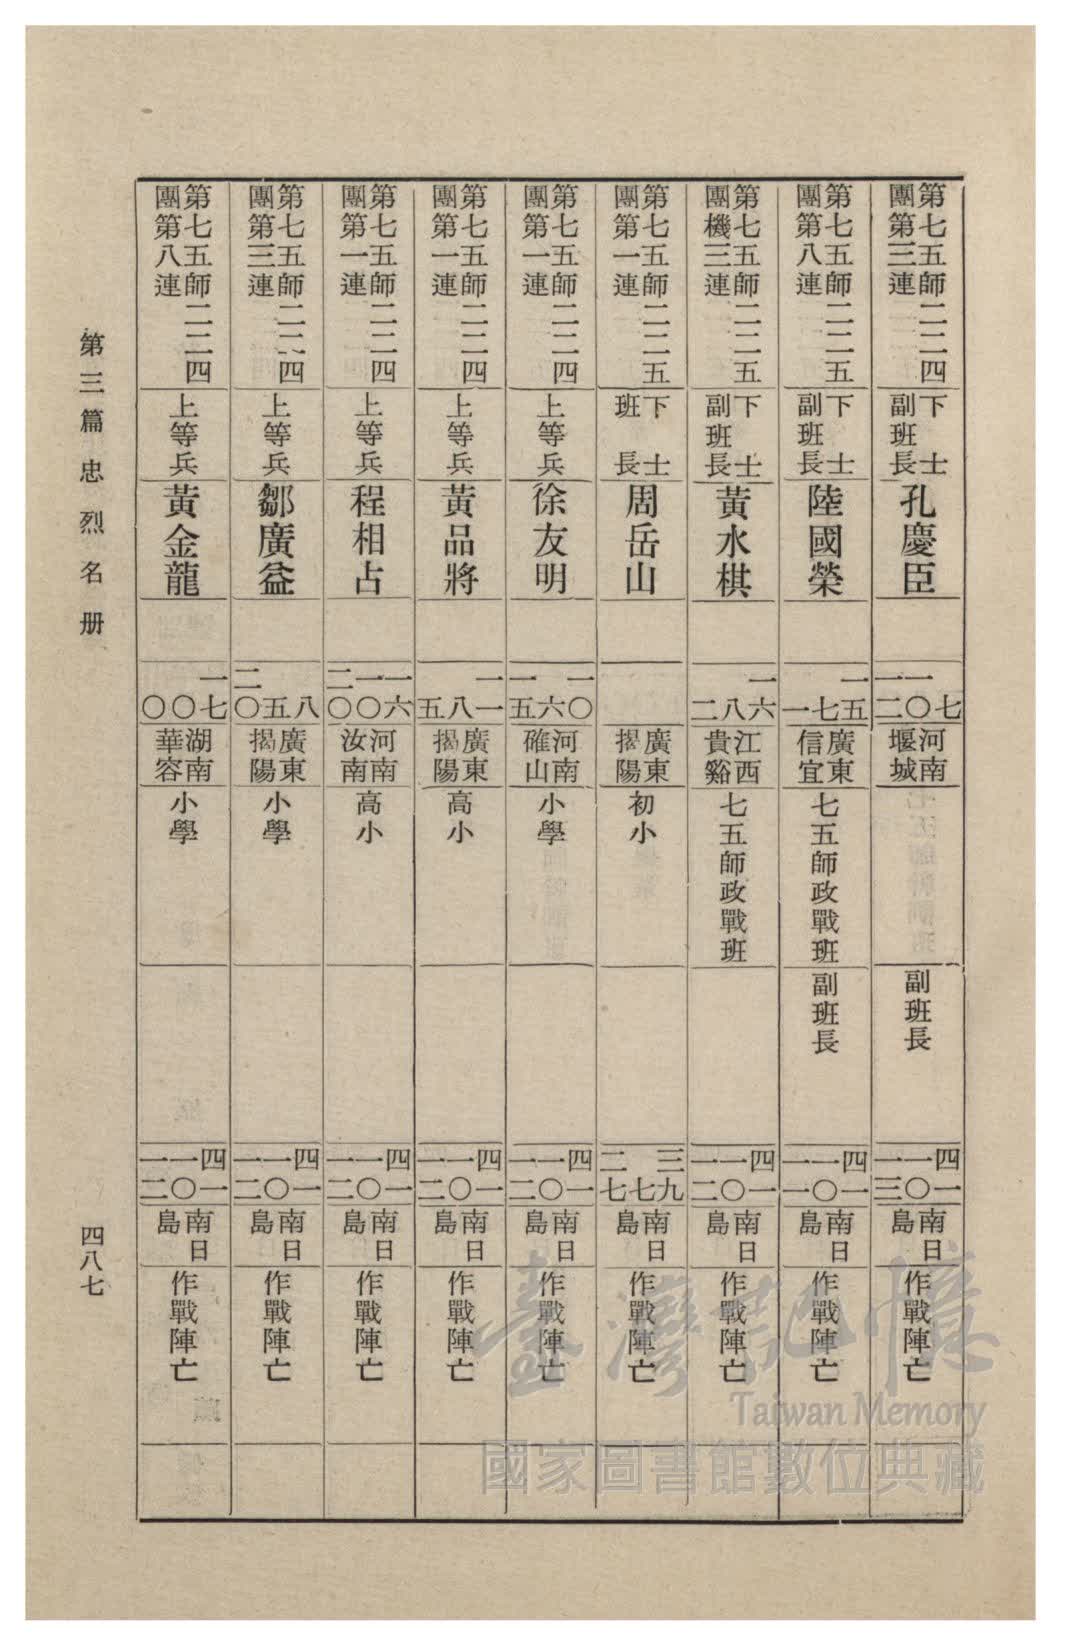 第七五師二二四
團第三連
下士
副班長
孔慶臣
七
一〇
一二
河南
堰城
副班長
四一
一〇
一三
南日
島
作戰陣亡
第七五師二二五
團第八連
下士
副班長
陸國榮
一五
七
一
廣東
信宜
七五師政戰班
副班長
四一
一〇
一一
南日
島
作戰陣亡
第七五師二二五
團機三連
下士
副班長
黃水棋
一六
八
二
江西
貴谿
七五師政戰班
四一
一〇
一二
南日
島
作戰陣亡
第七五師二二五
團第一連
下士
班長
周岳山
廣東
揭陽
初小
三九
七
二七
南日
島
作戰陣亡
第七五師二二四
團第一連
上等兵
徐友明
一〇
六
一五
河南
確山
小學
四一
一〇
一二
南日
島
作戰陣亡
第七五師二二四
團第一連
上等兵
黃品將
一一
八
五
廣東
揭陽
高小
四一
一〇
一二
南日
島
作戰陣亡
第七五師二二四
團第一連
上等兵
程相占
一六
一〇
二〇
河南
汝南
高小
四一
一〇
一二
南日
島
作戰陣亡
第七五師二二四
團第三連
上等兵
鄒廣益
八
五
二〇
廣東
揭陽
小學
四一
一〇
一二
南日
島
作戰陣亡
第七五師二二四
團第八連
上等兵
黃金龍
一七
〇
〇
湖南
華容
小學
四一
一〇
一二
南日
島
作戰陣亡
第三篇 忠烈名册
四八七
臺灣記憶
Taiwan Memory
國家圖書館數位典藏